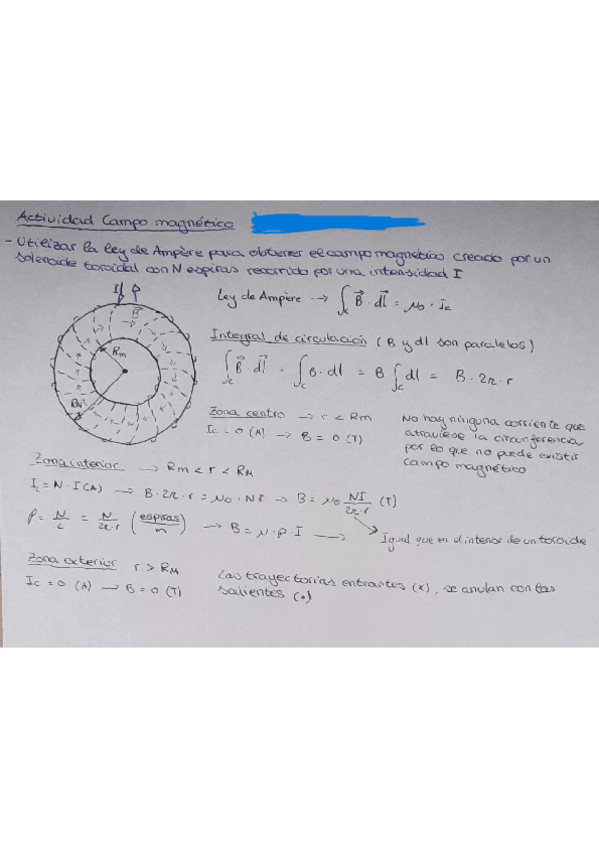 Actividad Campo magnético
- Utilizar la ley de Ampère para obtener el campo magnético creado por un
solenoide toroidal con N espiras recorrido por una intensidad I
I
B
Rm
RM
Ley de Ampère → ∫c B⃗ · dl⃗ = μ0 · Ic
Integral de circulación (B y dl son paralelos)
∫c B⃗ · dl⃗ = ∫c B · dl = B ∫c dl = B · 2π · r
Zona centro → r < Rm
Ic = 0 (A) → B = 0 (T)
No hay ninguna corriente que
atraviese la circunferencia
por lo que no puede existir
campo magnético
Zona interior → Rm < r < RM
Ic = N · I (A) → B · 2π · r = μ0 · NI → B = μ0 NI/2π·r (T)
ρ = N/L = N/2π·r (espiras/m) → B = μ · ρ · I →
Igual que en el interior de un toroide
Zona exterior r > RM
Ic = 0 (A) → B = 0 (T)
Las trayectorias entrantes (x), se anulan con las
salientes (•)